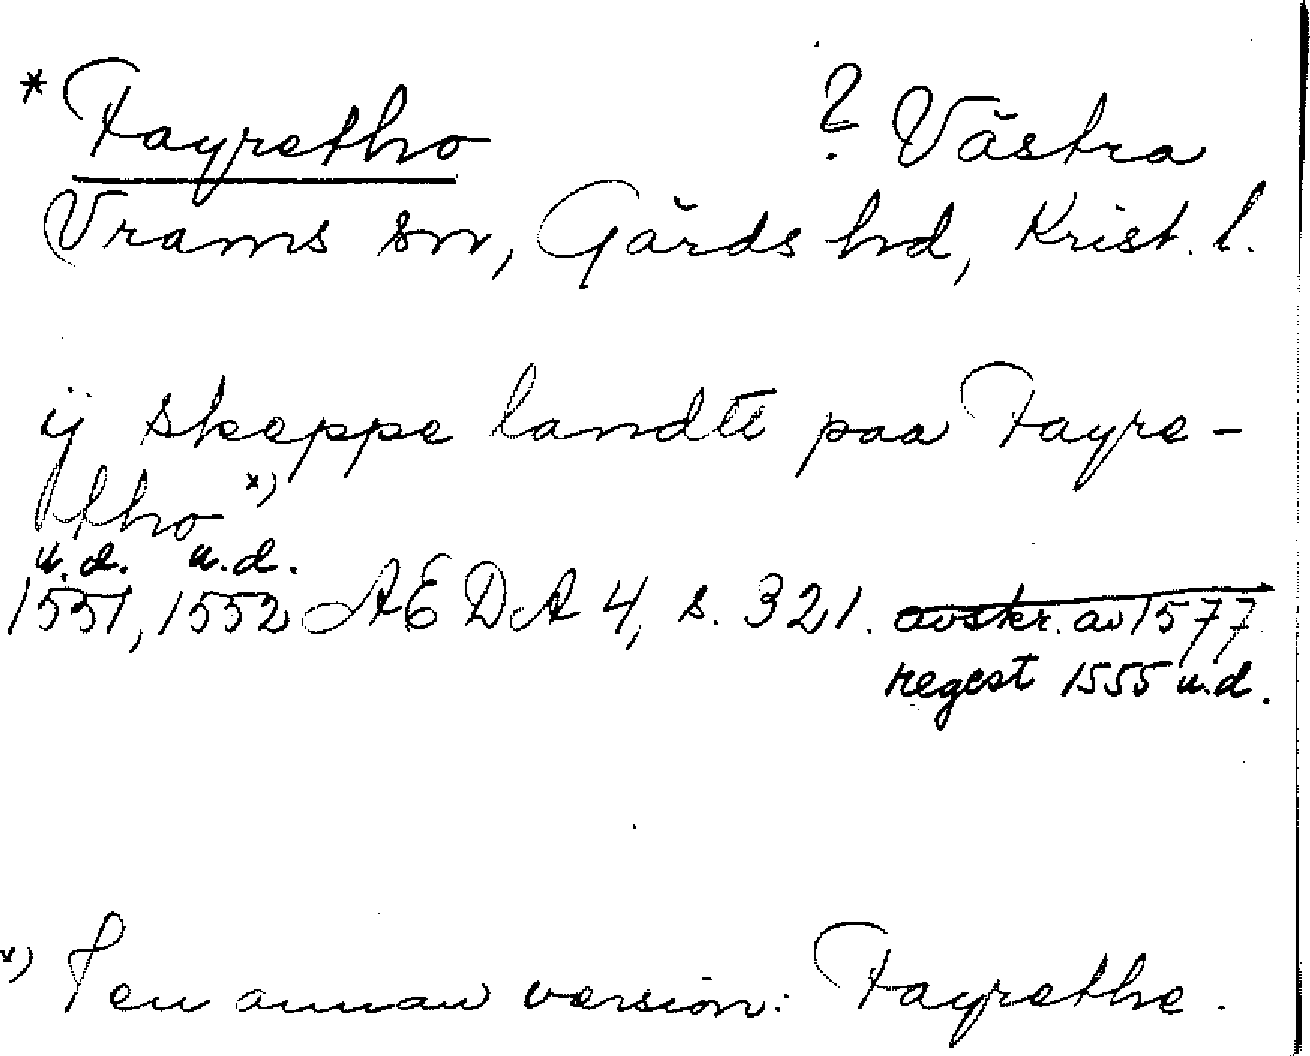 * Fayretho ? Västra
Vrams sn, Gärds hd, Krist. l.
ij skeppe landtt paa Fayre-
tho x)
u.d. u.d.
1551, 1552 AEDA 4, s. 321. avskr. av 1577
regest 1555 u.d.
x) I en annan version: Fayrethe.